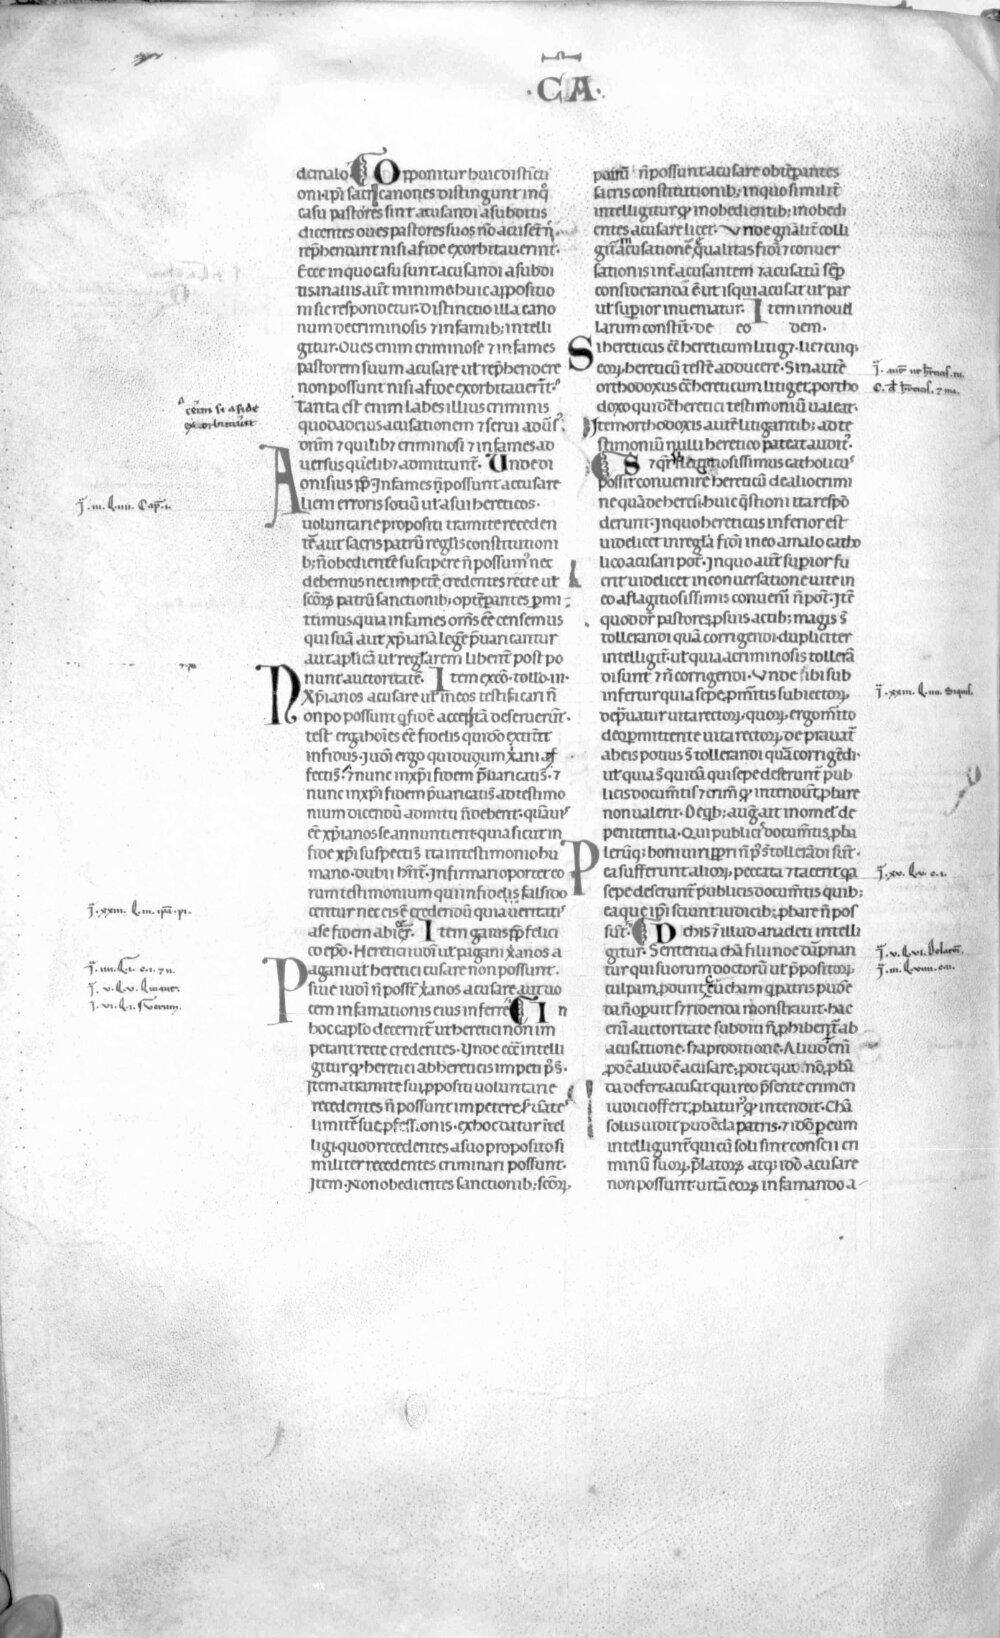 · C A ·
de malo. Opponitur huic distincti
oni. ip̄i sacri canones distingunt in q̊
casu pastores sint acusandi a subditis
dicentes oues pastores suos nō acusent n̄.
rep̄hendant nisi a fide exorbitauerint.
Ecce in quo casu sunt acusandi a subdi
tis. in aliis aut̄ minime. huic appositio
ni sic respondetur. distinctio illa cano
num de criminosis ⁊ infamib; intelli
gitur. Oues enim criminose ⁊ infames
pastorem suum acusare uł rep̄hendere
non possunt nisi a fide exorbitauerīt.
tanta est enim labes illius criminis
quod ad eius acusationem ⁊ serui adūs
dn̄m ⁊ quilib; criminosi ⁊ infames ad
uersus quēlib; admittunt̄. Unde di
onisius pp̄. Infames n̄ possunt accusare
Aliem erroris sotiū uł a sui hereticos.
uoluntarie propositi tramite receden
tē aut sacris patrū reg̃lis constitutioni
b; nobedientē suscipere n̄ possum᷒ nec
debemus nec impetere credentes recte uł
scōꝝ patrū sanctionib; optēperantes pmi
timus. quia infames om̄s eē censemus
qui suā aut xp̄ianā legē p̄uaricantur
aut ap̄licā uł regłarem libent̄ post po
nunt auctoritatē. Item ex cō. tolto. iiii.
Xp̄ianos acusare uł in eos testificari n̄
Non po possunt q̄ fidē acceptā deseruerūt.
test erga hoīes eē fidelis qui dō extit̄it
infidus. Iudī ergo qui dudum xani ef
fecti s̄. ⁊ nunc in xp̄i fidem p̄uaricati s̄. ⁊
nunc in xp̄i fidem p̄uaricati s̄ ad testimo
nium dicendū admitti n̄ debent. quāuis
eē xp̄ianos se annuntient. quia sicut in
fide xp̄i suspecti s̄ ita in testimonio hu
mano dubii hn̄t̄. Infirmari oportet eo
rum testimonium qui in fide sis falsi do
centur nec eis ē credendū quia ueritatis
a se fidem abiecer̄. Item gaius pp̄ felici
co ep̄o. Heretici iudī uł pagani xanos a
Pagani uł heretici cusare non possunt.
siue iudī n̄ posst̄ xanos acusare aut uo
cem infamationis eius inferre. In
hoc capło decernit̄ ut heretici non im
petant recte credentes. Unde ecc̄e intelli
gitur q̄ heretici ab hereticis impeti pn̄s.
Item a tramite sui ppositi uoluntarie
recedentes n̄ possunt impetere seruātes
limitē sue pfessionis. ex hoc datur ītel
ligi. quod recedentes a suo proposito si
militer recedentes criminari possunt.
Item. Non obedientes sanctionib; scōꝝ.
patrū n̄ possunt acusare obtēperantes
sacris constitutionib; in quo similit̄
intelligitur q̄ inobedientib; inobedi
entes acusare licet. Unde gn̄alit̄ colli
git̄ in acusatione qualitas fidī ⁊ conuer
sationis int̄ acusantem ⁊ acusatū sēp
consideranda ē ut is qui acusat uł par
uł supior inueniatur. Item in nouel
larum constit̄. de eo dem.
Si hereticus cū hereticum litig;. licet cuiq;
eoꝝ hereticū testē adducere. Sin autē
orthodoxus cū hereticum litiget, p ortho
doxo quidē heretici testimoniū ualeat.
Item orthodoxis autē litigantib; ad te
stimoniū nulli heretico pateat audit᷒.
S; ⁊ q̄ritur si flagitiosissimus catholicus
possit conuenire hereticū de alio crimi
ne quā de heresi. huic q̄stioni ita respō
derunt. In quo hereticus inferior est
uidelicet in regła fidī in eo a malo catho
lico acusari pot̄. In quo aut̄ supior fu
erit uidelicet in conuersatione uite in
eo a flagitiosissimis conueniri n̄ pot̄. Itē
quod dr̄ pastores p suis actib; magis s̄
tollerandi quā corrigendi. dupliciter
intelligit̄. uł quia a criminosis tollerā
di sunt ⁊ n̄ corrigendi. Unde sibi sub
infertur quia sepe p mīitis subiectoꝝ
dep̄uatur uita rectoꝝ, quoꝝ, ergo m̄ito
deo p mittente uita rectoꝝ, deprauat̄
ab eis potius s̄ tollerandi quā corrigēdi.
uł quia s̄ quidā qui sepe deserunt̄ pub
licis documītis ⁊ crim̄ q̄ intendūt, pbare
non ualent. De qb; aug̃. ait in omel̄. de
penitentia. Qui publicis documītis pba
Pleriq; boni uiri p pri n̄ ps̄t tollerādi sūt.
ea sufferunt alioꝝ, peccata ⁊ tacent qa
sepe deserunt̄ publicis documītis quib;
ea que ip̄i sciunt iudicib; pbare n̄ pos
sūt. De his ⁊ illud anacleti intelli
gitur. Sententia cham filii noe dāpnan
tur qui suorum doctorū uł p̄positoꝝ.
culpam, pdunt, ceu cham q patris pudē
da n̄ opuit s; ridenda monstrauit. hac
enī auctoritate subditi n̄ phibent̄ ab
acusatione. s; a proditione. Aliud enī
ꝓdē aliud ē acusare, pdit qui nō pbā
da defert. acusat qui reo p̄sente crimen
iudici offert, pbatur q̄ intendit. Chā
solus uidit pudēda patris. ⁊ idō p eum
intelligunt̄ qui cū soli sint conscii cri
minū suoꝝ, p̄latoꝝ atq; idō acusare
non possunt. uitā eoꝝ infamando a
cēm se a fide
exorbitauerīt
q̄. iii. c̄. iiii. Cap̄. i.
q̄. xxiii. c̄. iii. ip̄a. pi.
q̄. iiii. c̄. i. c. i. ⁊ ii.
q̄. v. c̄. v.
q̄. vi. c̄. i.
q̄. xxiii. c̄. iiii. Siquis.
q̄. xv. c̄. v. c. i.
q̄. v. c̄. vi. Delatori.
q̄. iii. c̄. viii. c. ii.